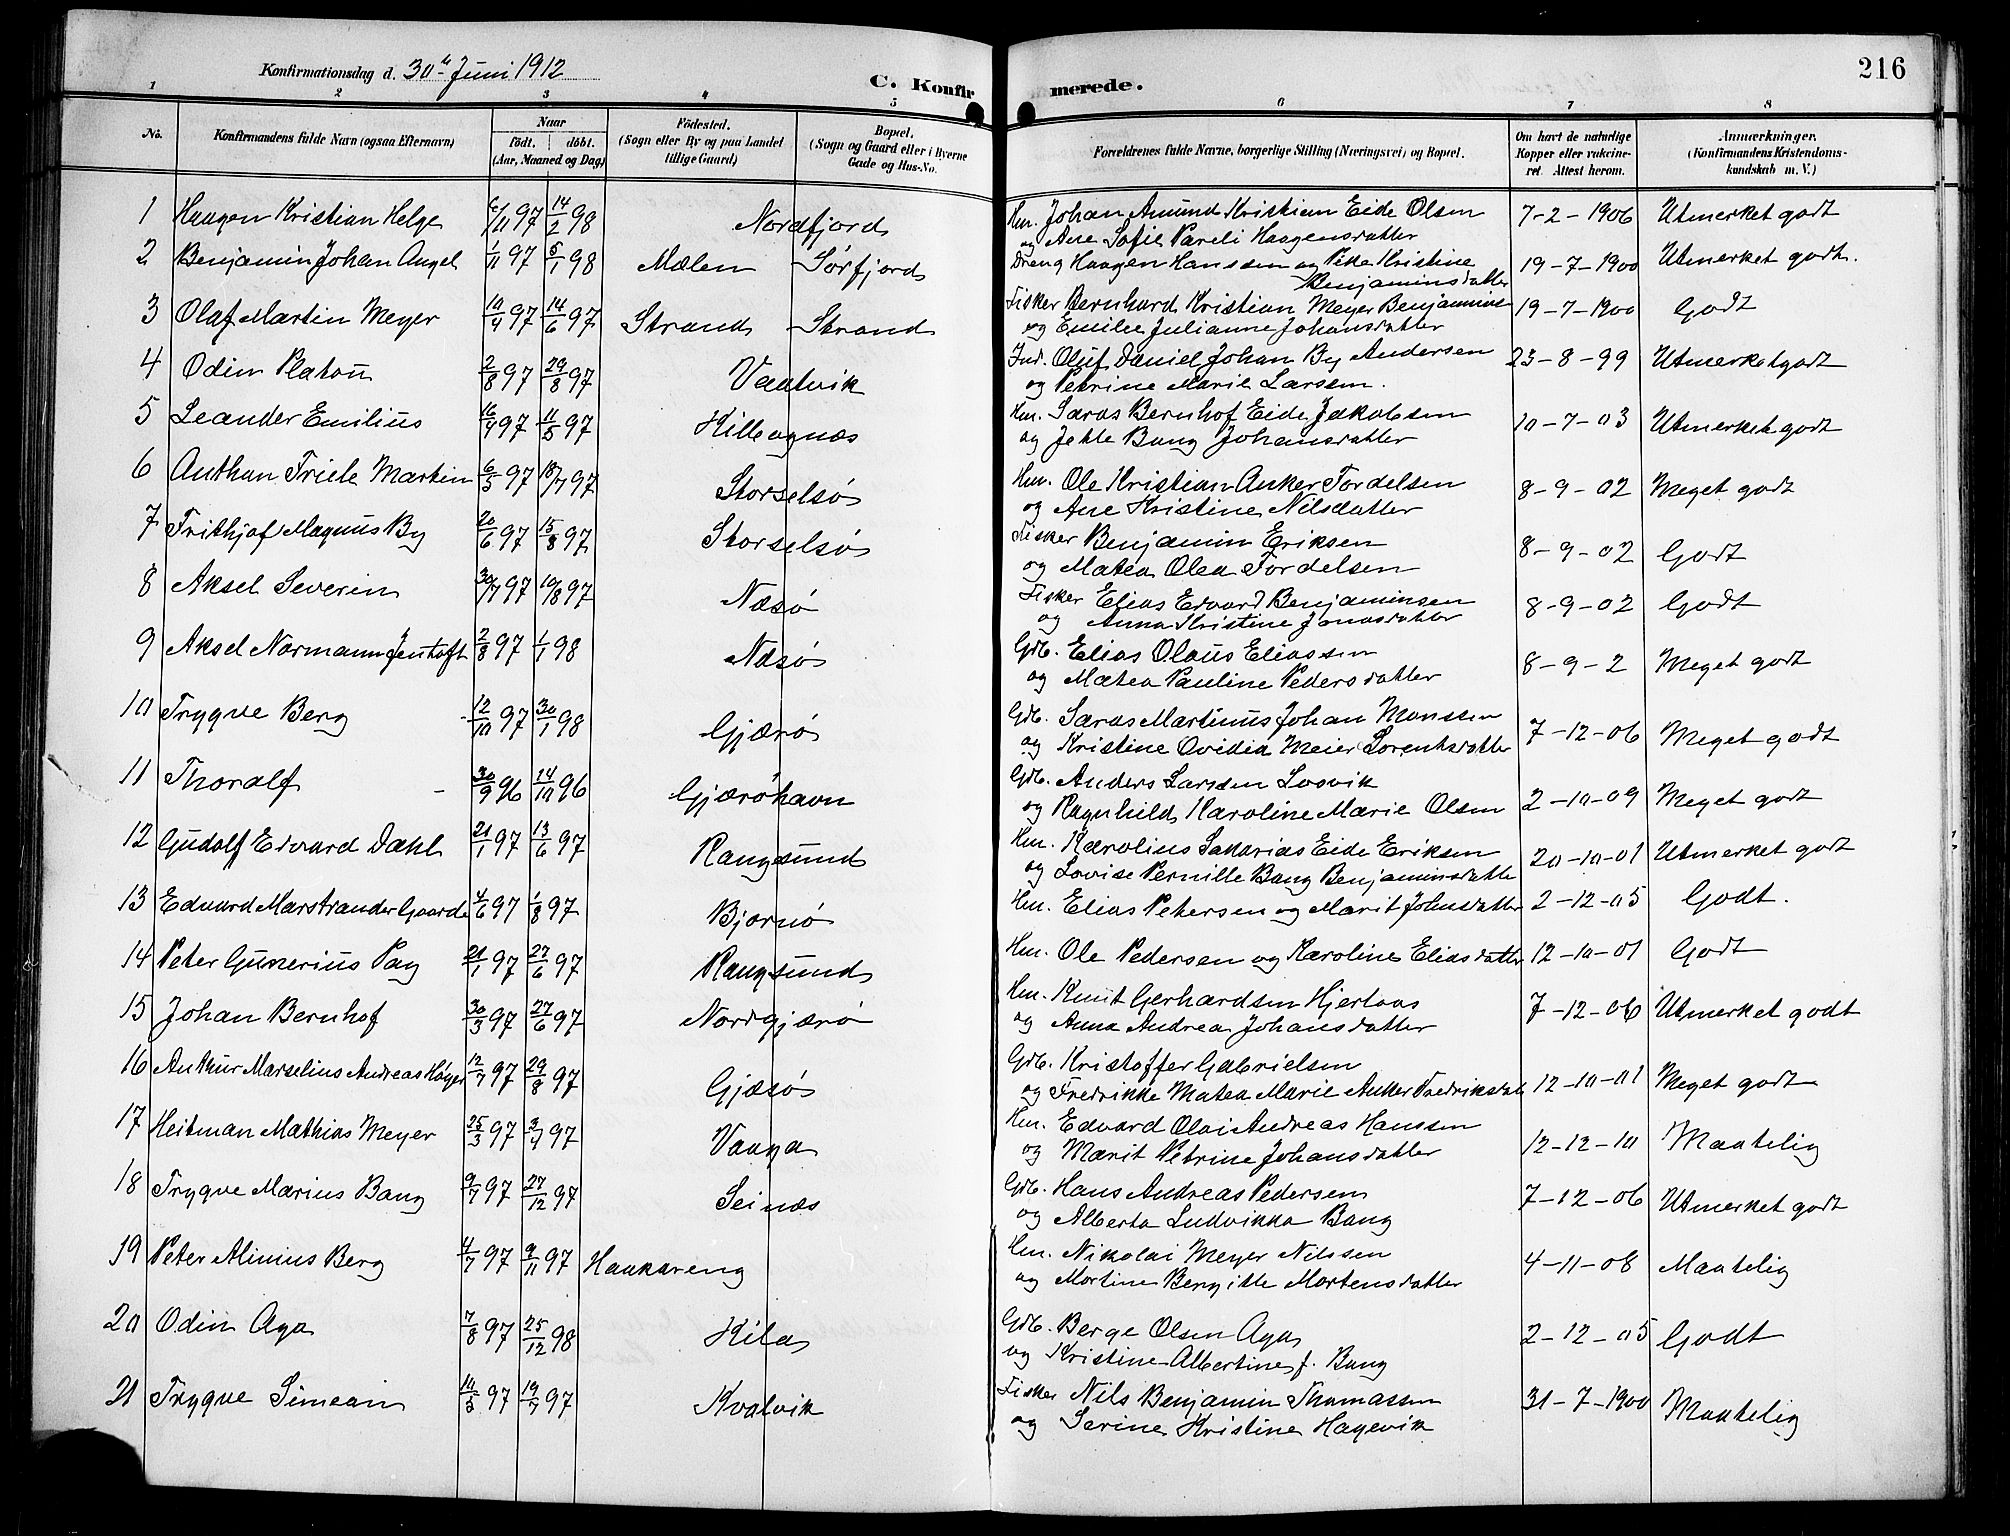 216
Konfirmationsdag d. 30te Juni 1912
C. Konfirmerede.
1 2 3 4 5 6 7 8
No.
Konfirmandens fulde Navn (ogsaa Efternavn)
Naar
födt. döbt.
(Aar, Maaned og Dag)
Födested.
(Sogn eller By og paa Landet
tillige Gaard)
Bopæl.
(Sogn og Gaard eller i Byerne
Gade og Hus-No.
Forældrenes fulde Navne, borgerlige Stilling (Næringsvei) og Bopæl.
Om havt de naturlige
Kopper eller vakcine-
ret. Attest herom.
Anmærkninger.
(Konfirmandens Kristendoms-
kundskab m. V.)
1 Haagen Kristian Helge 6/11 97 14/2 98 Nordfjord Hm. Johan Amund Kristian Eide Olsen 7-2-1906 Utmerket godt
og Ane Sofie Pareli Haagensdatter
2 Benjamin Johan Angel 1/11 97 5/1 98 Mælen Sörfjord Dreng Haagen Hanssen og Kristine 19-7-1900 Utmerket godt.
Benjaminsdatter
3 Olaf Martin Meyer 10/4 97 14/6 97 Strand Strand Fisker Bernhard Kristian Meyer Benjaminse 19-7-1900 Godt
og Emilie Julianne Johansdatter
4 Odin Platou 2/8 97 29/8 97 Vaatvik Ind. Oluf Daniel Johan By Andersen 23-8-99 Utmerket godt
og Petrine Marie Larsen.
5 Leander Emilius 16/4 97 11/5 97 Kilbognæs Hm. Saras Bernhof Eide Jakobsen 10-7-03 Utmerket godt
og Jekte Bang Johansdatter
6 Anthon Friele Martin 6/5 97 18/7 97 Storselsö Hm. Ole Kristian Anker Tordelsen 8-9-02 Meget godt
og Ane Kristine Nilsdatter
7 Frithjof Magnus By 20/6 97 15/8 97 Storselsö Fisker Benjamin Eriksen 8-9-02 Godt
og Matea Olea Tordelsen
8 Aksel Severin 30/7 97 10/8 97 Næsö Fisker Elias Edvard Benjaminsen 8-9-02 Godt
og Anna Kristine Jonasdatter
9 Aksel Normann Jentoft 2/8 97 1/1 98 Næsö Gdb. Elias Olaus Eliassen 8-9-2 Meget godt
og Matea Pauline Pedersdatter
10 Trygve Berg 12/10 97 30/1 98 Gjærö Gdb. Saras Martinus Johan Monssen 7-12-06 Meget godt
og Kristine Ovidia Meier Lorentsdatter
11 Thoralf 30/9 96 14/10 96 Gjæröhavn Gdb. Anders Larsen Losvik 2-10-09 Meget godt
og Ragnhild Karoline Marie Olsen
12 Gudolf Edvard Dahl 21/1 97 13/6 97 Rangsund Hm. Karolius Sakarias Eide Eriksen 20-10-01 Utmerket godt
og Lovise Pernille Bang Benjaminsdatte
13 Edvard Marstrander Gaarde 4/6 97 1/8 97 Bjornö Hm. Elias Petersen og Marit Johnsdatter 2-12-05 Godt.
14 Peter Gunerius Pay 21/1 97 27/6 97 Rangsund Hm. Ole Pedersen og Karoline Eliasdatter 12-10-01 Godt
15 Johan Bernhof 30/3 97 27/6 97 Nordgjærö Hm. Knut Gerhardsen Hjertaas 7-12-06 Utmerket godt
og Anna Andrea Johansdatter
16 Arthur Marselius Andreas Höyer 12/7 97 29/8 97 Gjæsö Gdb. Kristoffer Gabrielsen 12-10-01 Meget godt
og Fredrikke Matea Marie Anker Fredriksdat
17 Heitman Mathias Meyer 25/3 97 3/4 97 Vaaga Hm. Edvard Olai Andreas Hanssen 12-12-10 Maatelig
og Marit Petrine Johansdatter
18 Trygve Marius Bang 9/7 97 27/12 97 Seinæs Gdb. Hans Andreas Pedersen 7-12-06 Utmerket godt
og Alberta Ludvikka Bang
19 Peter Alinius Berg 4/7 97 9/11 97 Haakareng Hm. Nikolai Meyer Nilssen 4-11-08 Maatelig
og Martine Bergitte Mortensdatter
20 Odin Aga 7/8 97 25/12 98 Kila Gdb. Berge Olsen Aga 2-12-05 Godt
og Kristine Albertine f. Bang
21 Trygve Simeon 10/5 97 19/7 97 Kvalvik Fisker Nils Benjamin Thomassen 31-7-1900 Maatelig
og Serine Kristine Hagevik